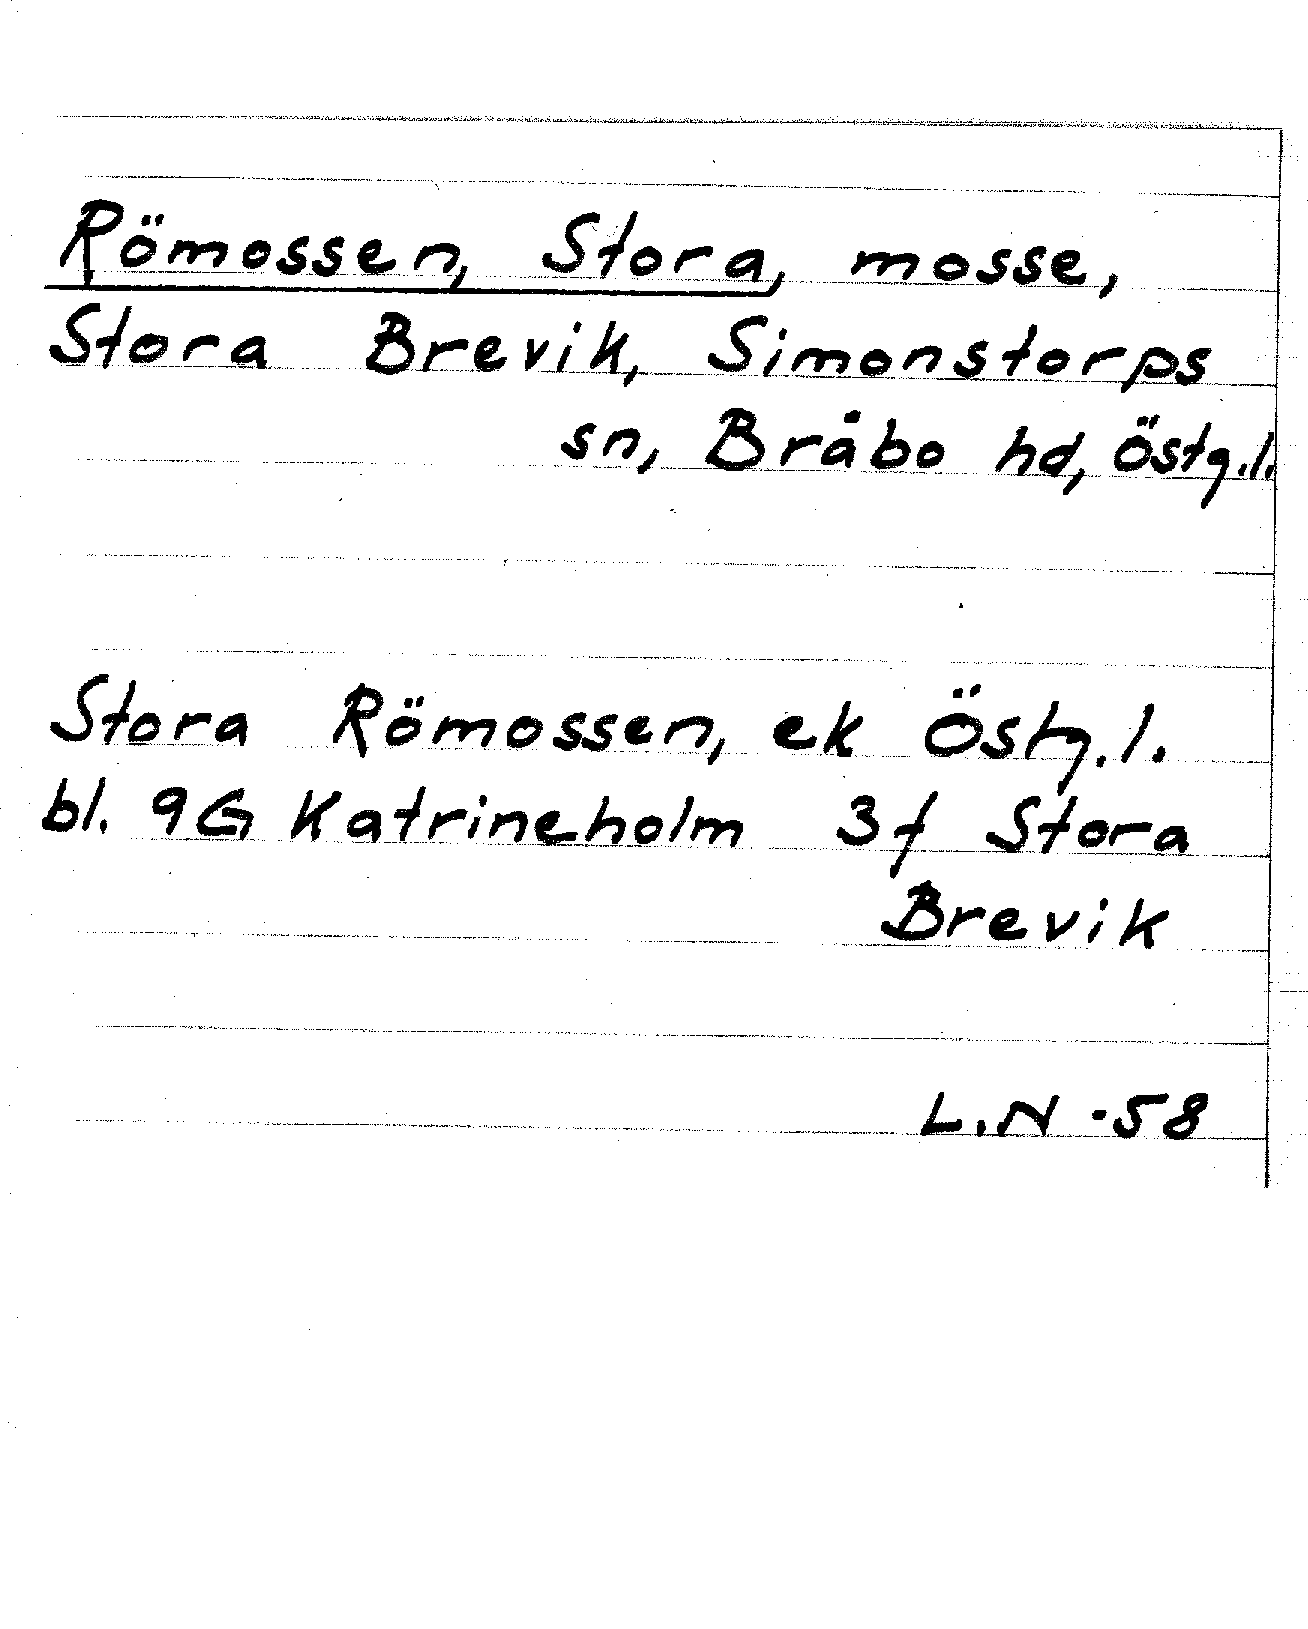 Römossen, Stora, mosse,
Stora Brevik, Simonstorps
sn, Bråbo hd, Östg.l.
Stora Römossen, ek Östg.l.
bl. 9G Katrineholm 3f Stora
Brevik
L.N -58